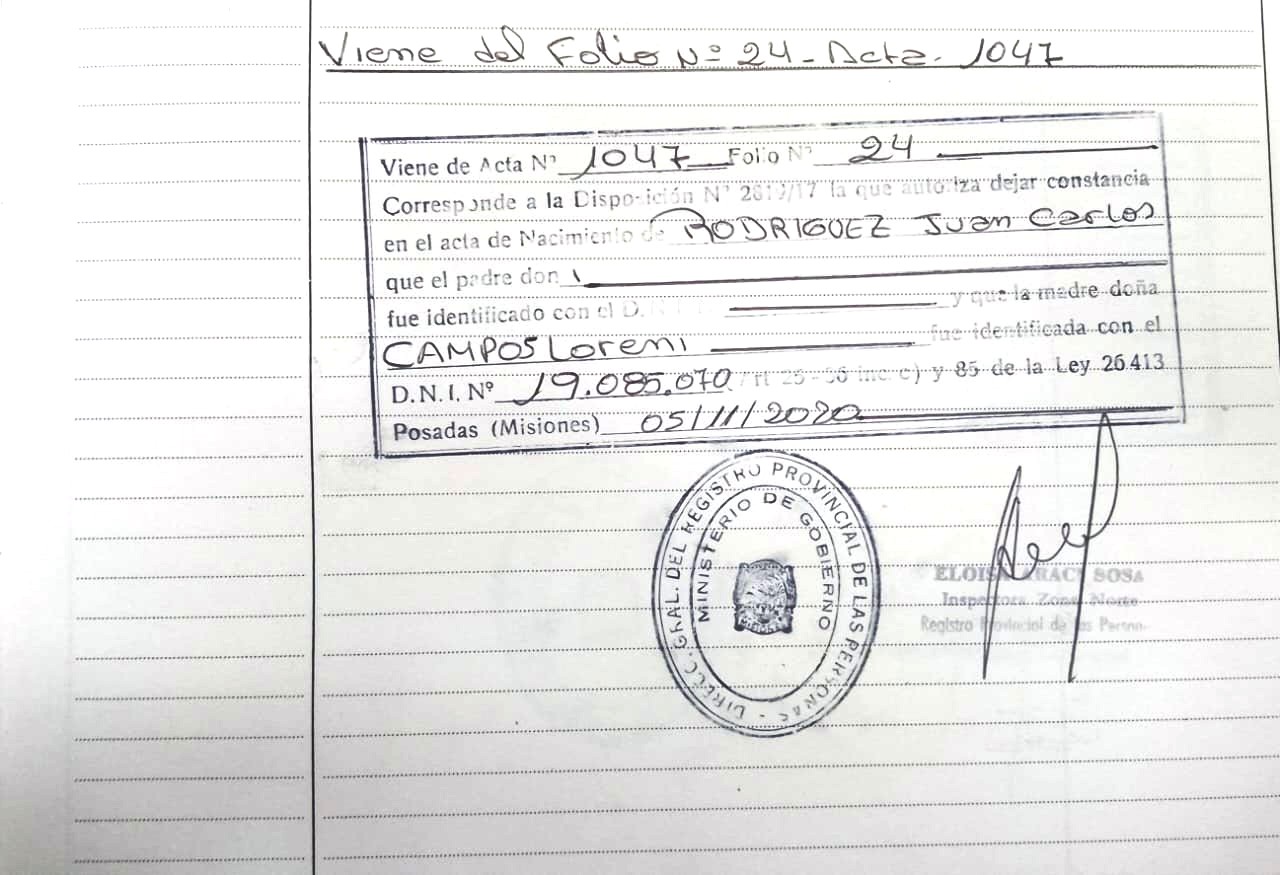 Viene del Folio Nº 24 - Acta. 1047
Viene de Acta Nº 1047 Folio Nº 24
Corresponde a la Disposición Nº 2819/17 la que autoriza dejar constancia
en el acta de Nacimiento de RODRIGUEZ Juan Carlos
que el padre don
fue identificado con el D. y que la madre doña
CAMPOS Loreni fue identificada con el
D.N.I. Nº 19.085.070 inc c) y 85 de la Ley 26413
Posadas (Misiones) 05/11/2020
DIREC. GRAL. DEL REGISTRO PROVINCIAL DE LAS PERSONAS -
MINISTERIO DE GOBIERNO
ELOISA ARACI SOSA
Inspectora Zona Norte
Registro Provincial de las Person